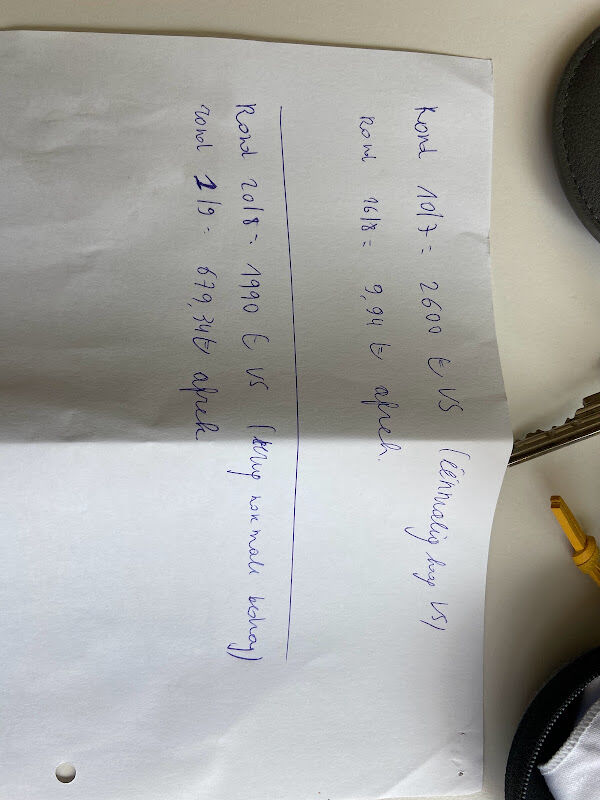 Rond 10/7 = 2600 € VS (éénmalig hxp VS)
Rond 16/8 = 9,94 € afrek.
Rond 20/8 = 1990 € VS (terug normale bedrag)
rond 1/9 = 679,34€ afrek